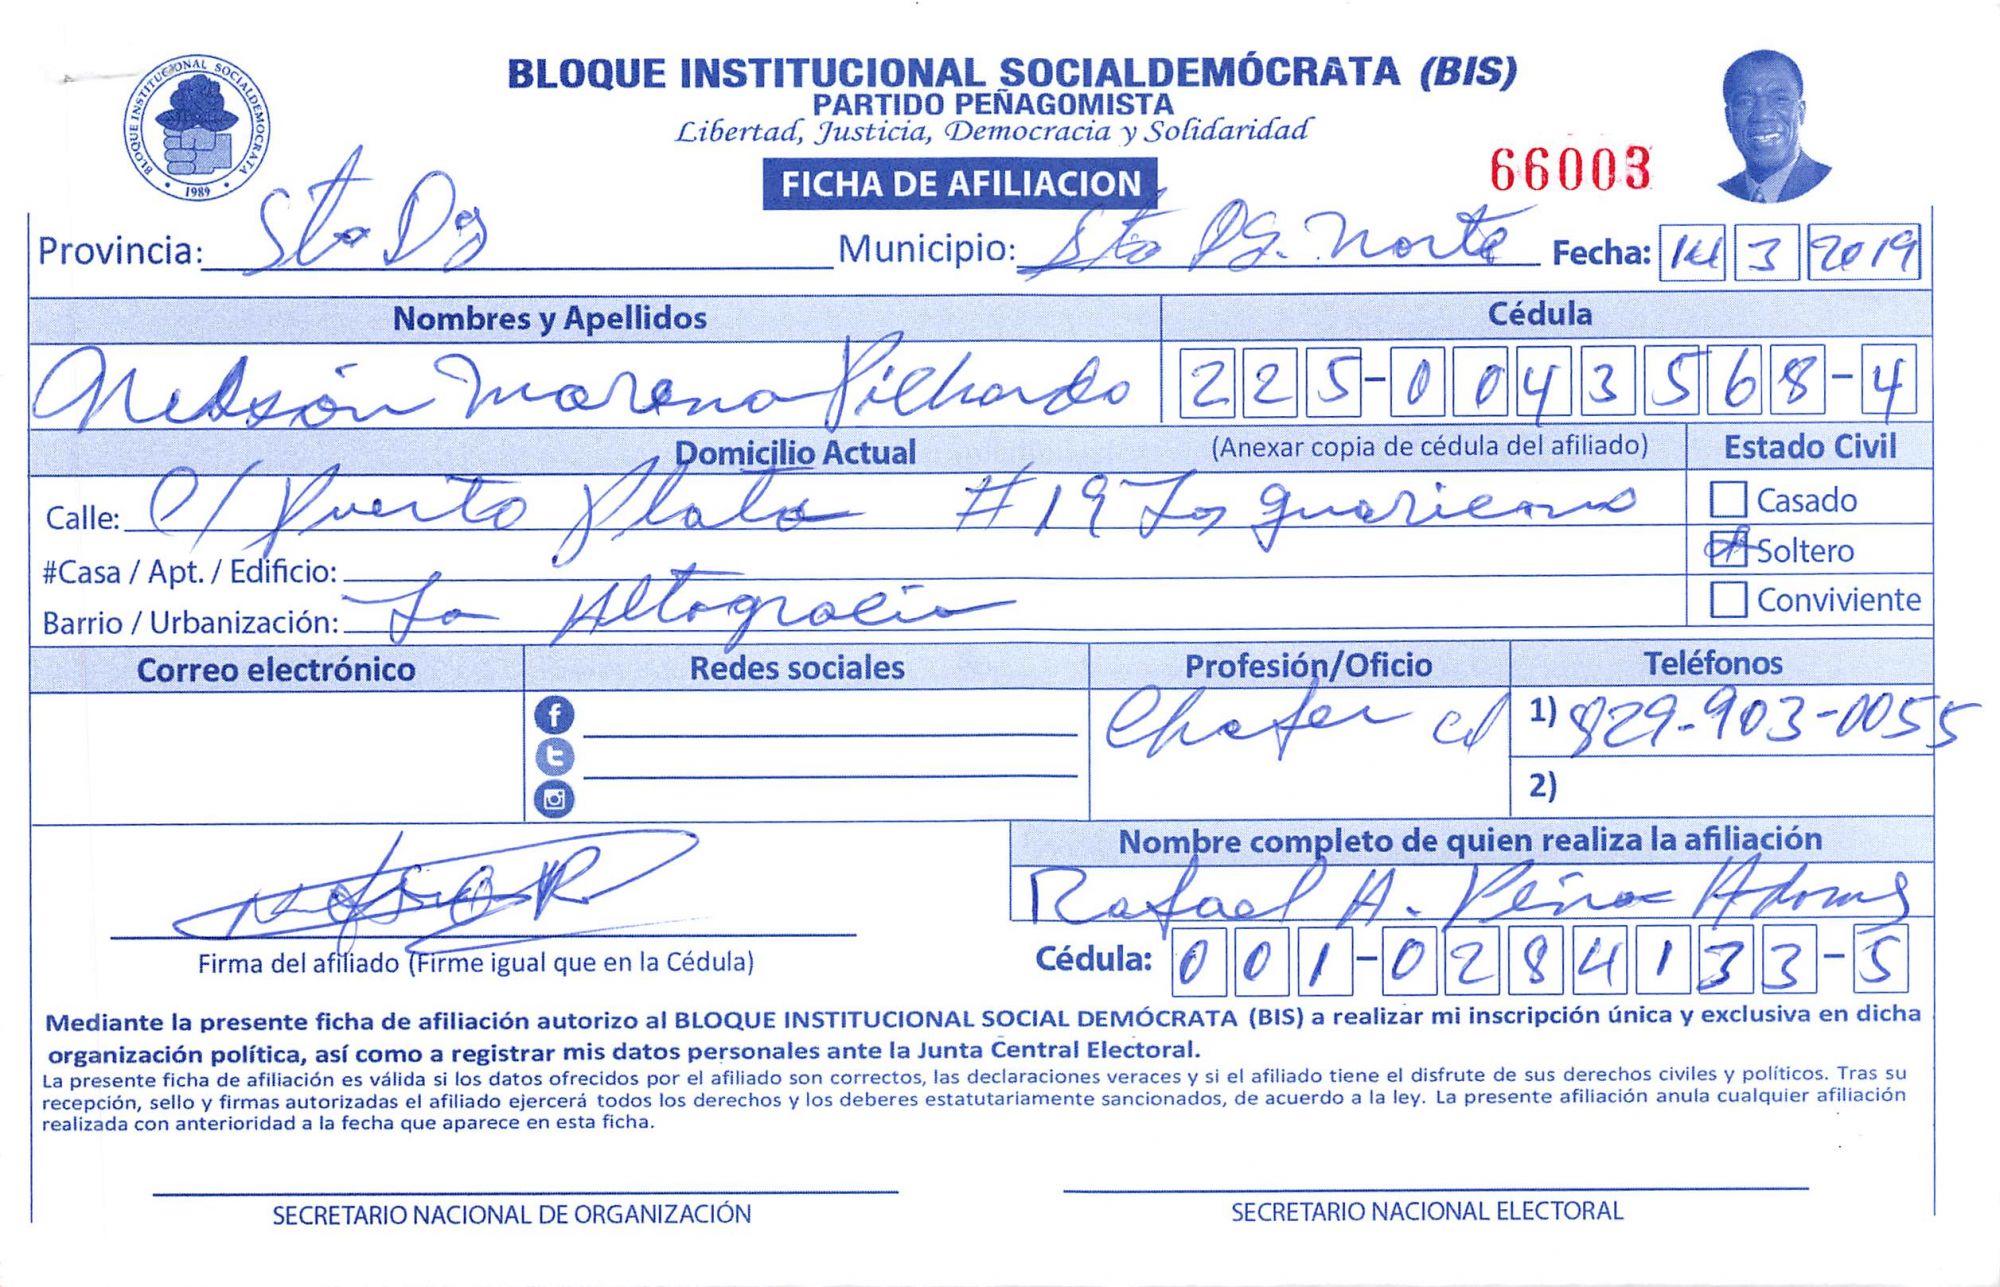 BLOQUE INSTITUCIONAL SOCIALDEMOCRATA
1989
BLOQUE INSTITUCIONAL SOCIALDEMÓCRATA (BIS)
PARTIDO PEÑAGOMISTA
Libertad, Justicia, Democracia y Solidaridad
66003
FICHA DE AFILIACION
Provincia: Sto Dg Municipio: Sto DG. Norte Fecha: 14 3 2019
Nombres y Apellidos Cédula
Nelsón Moreno Pichardo 225-0043568-4
Domicilio Actual (Anexar copia de cédula del afiliado) Estado Civil
Calle: C/ Puerto Plata #19 Los guaricano Casado
#Casa / Apt. / Edificio: Soltero
Barrio / Urbanización: La Altagracia Conviviente
Correo electrónico Redes sociales Profesión/Oficio Teléfonos
Chofer 1) 829-903-0055
2)
Nombre completo de quien realiza la afiliación
Rafael A. Peña Adams
Firma del afiliado (Firme igual que en la Cédula) Cédula: 001-0284133-5
Mediante la presente ficha de afiliación autorizo al BLOQUE INSTITUCIONAL SOCIAL DEMÓCRATA (BIS) a realizar mi inscripción única y exclusiva en dicha
organización política, así como a registrar mis datos personales ante la Junta Central Electoral.
La presente ficha de afiliación es válida si los datos ofrecidos por el afiliado son correctos, las declaraciones veraces y si el afiliado tiene el disfrute de sus derechos civiles y políticos. Tras su
recepción, sello y firmas autorizadas el afiliado ejercerá todos los derechos y los deberes estatutariamente sancionados, de acuerdo a la ley. La presente afiliación anula cualquier afiliación
realizada con anterioridad a la fecha que aparece en esta ficha.
SECRETARIO NACIONAL DE ORGANIZACIÓN SECRETARIO NACIONAL ELECTORAL